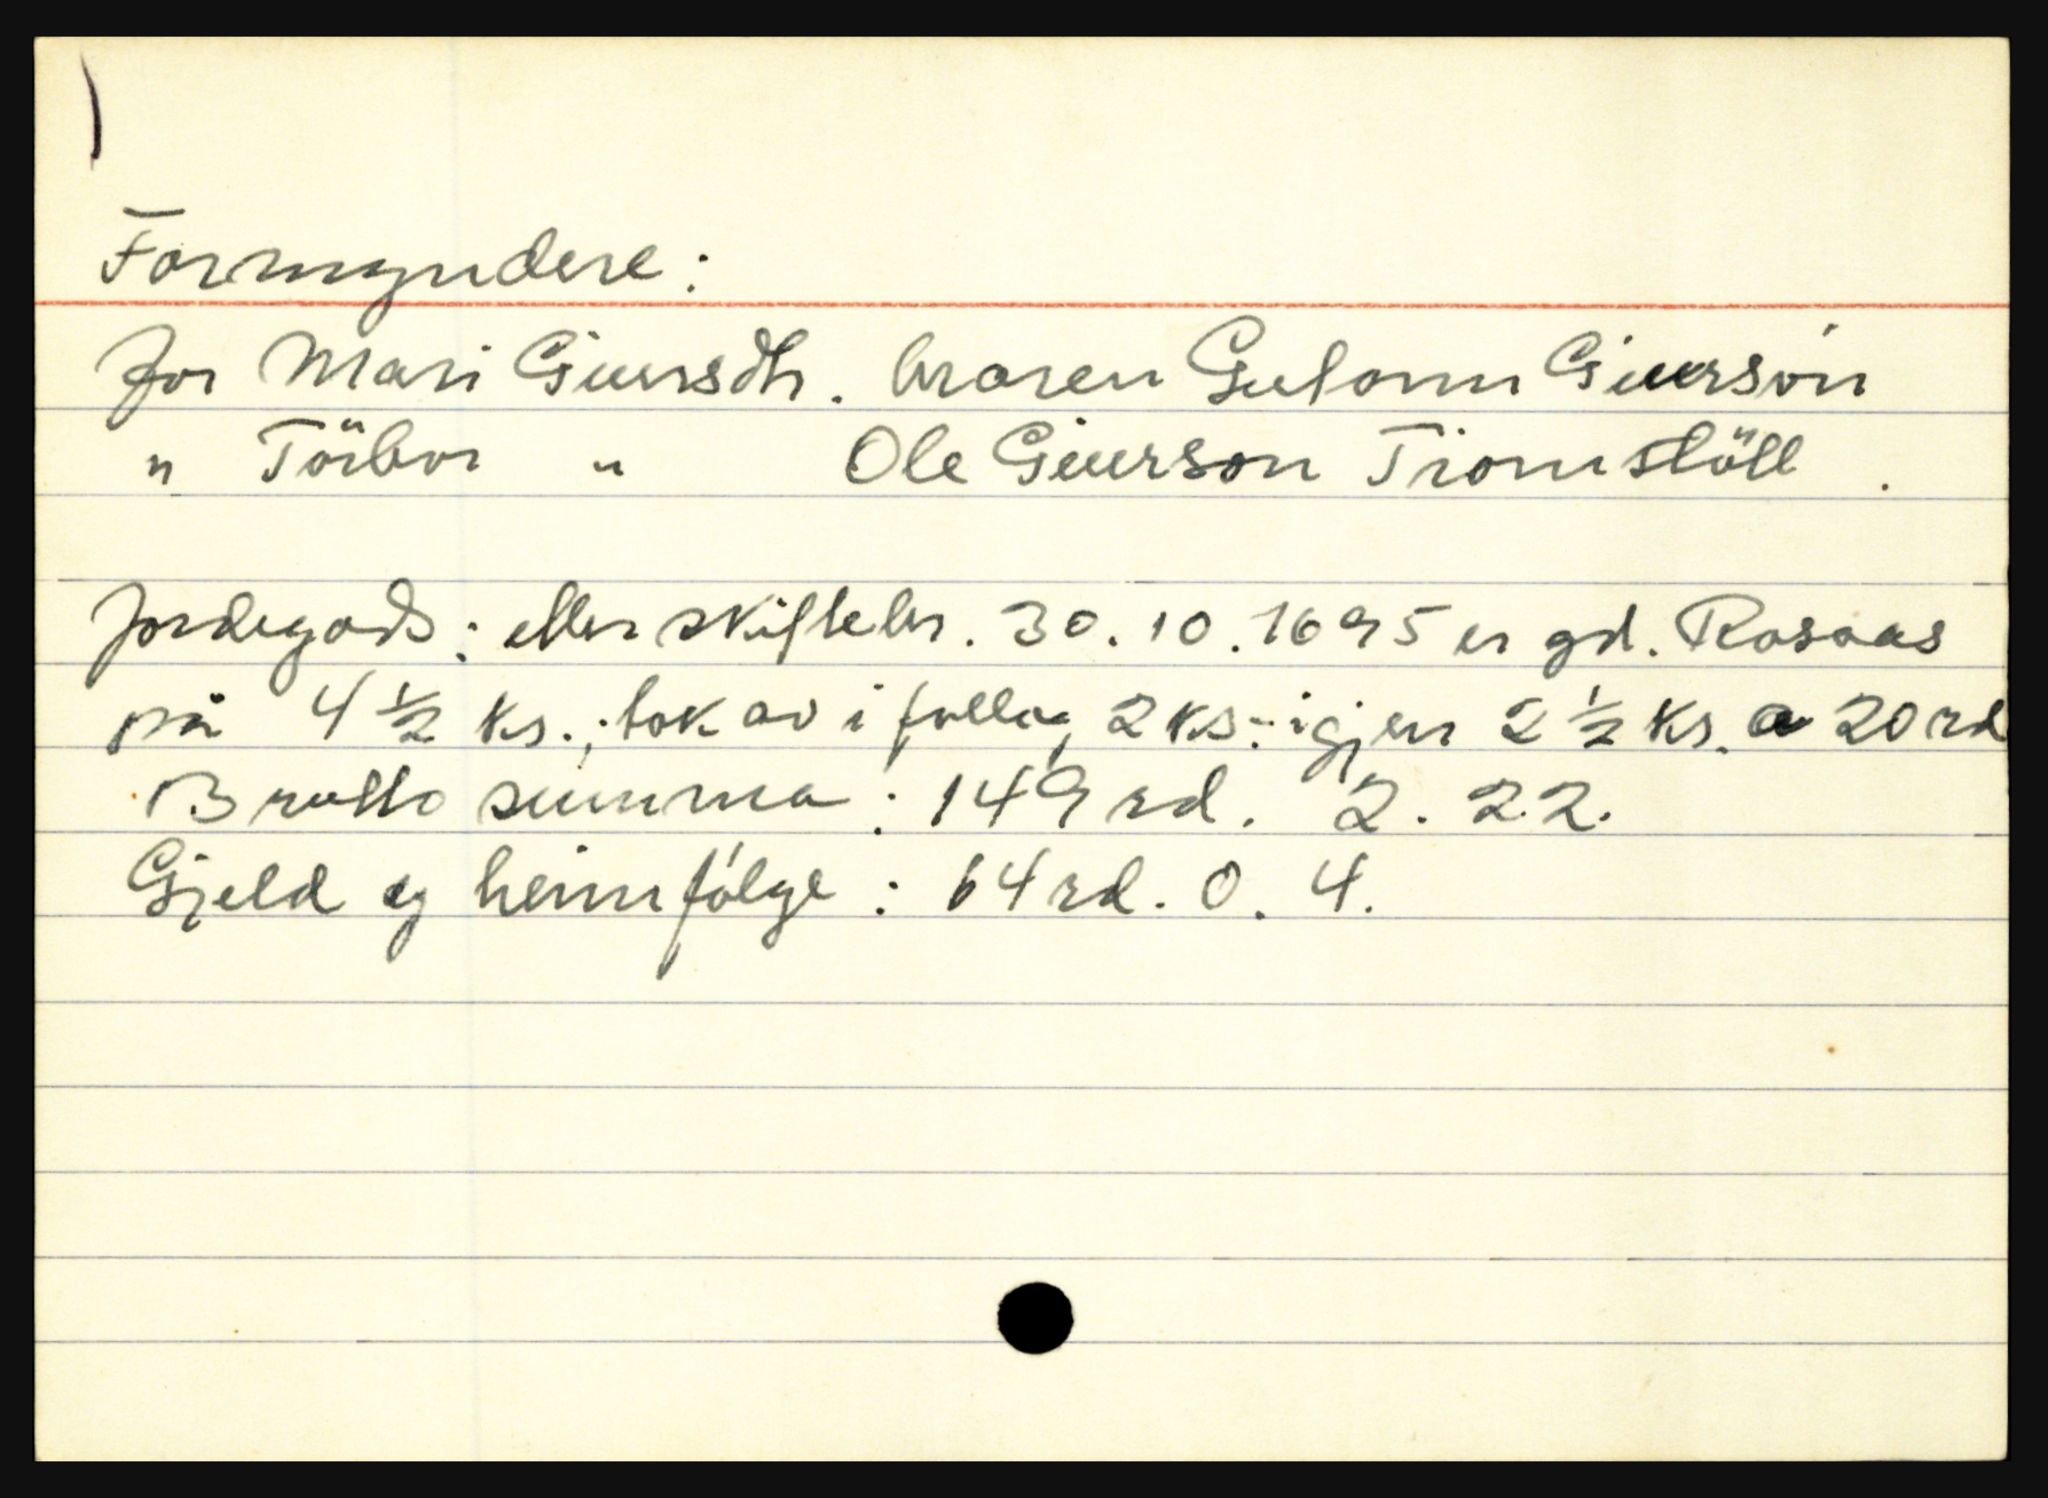 Formyndere:
for Mari Giversdtr. broren Gulaun Giversön
" Törbor " Ole Giverson Tiomstöll.
Jordegods: etter skiftebr. 30.10.1695 er gd. Rosaas
på 4 1/2 ks.; tok av i fella, 2 ks.: igjen 2 1/2 ks. a 20 rd
Brutto summa: 149 rd. 2. 22.
Gjeld og heimfölge: 64 rd. 0. 4.